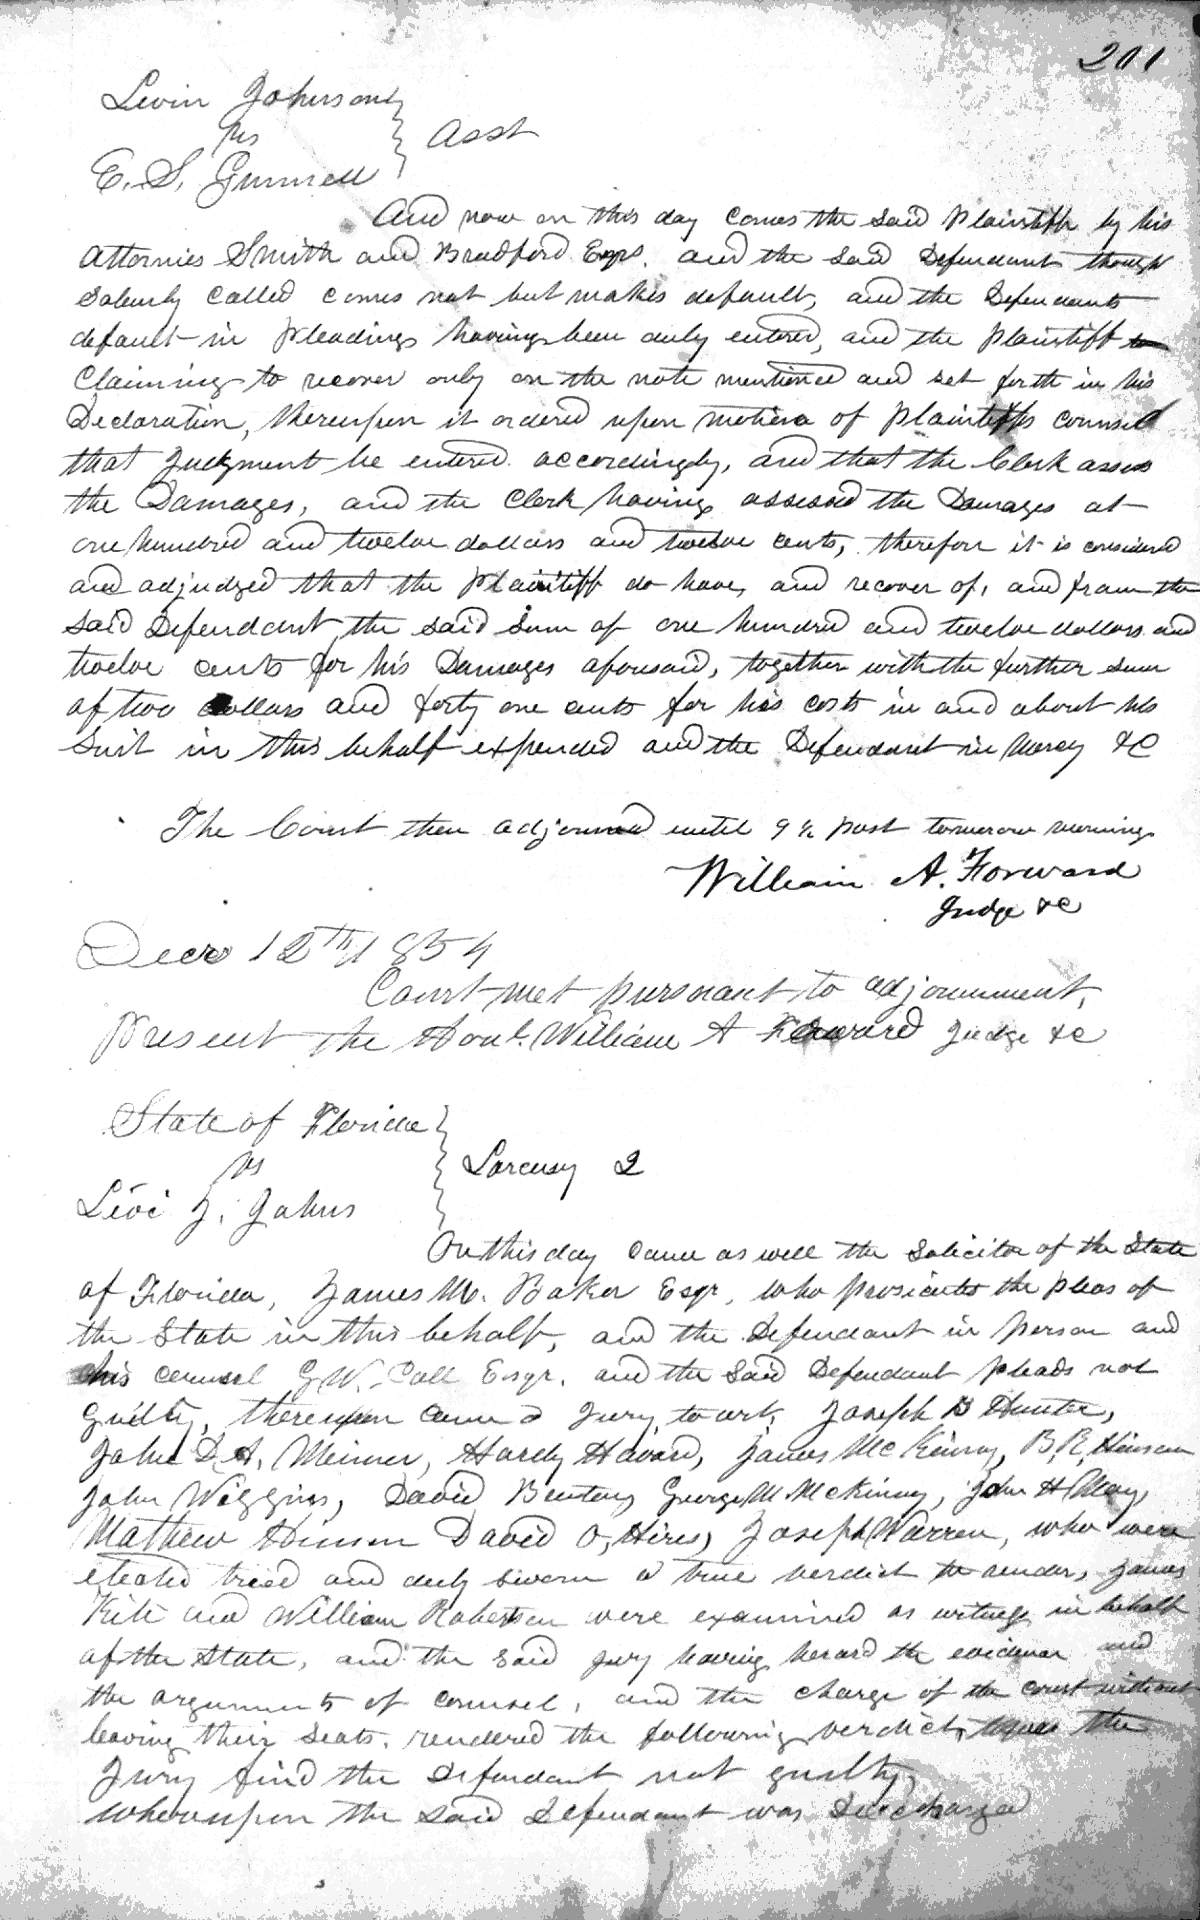 201
Levin Johnson
vs
Asst
E. S. Gunnell
And now on this day comes the said Plaintiff by his
Attornies Smith and Bradford Esqrs. and the said Defendant though
solemnly called comes not but makes default, and the Defendants
default in pleadings having been duly entered, and the Plaintiff
claiming to recover only on the note mentioned and set forth in his
Declaration, thereupon it ordered upon motion of Plaintiffs counsel
that Judgment be entered accordingly, and that the Clerk assess
the Damages, and the Clerk having assessed the Damages at
one hundred and twelve dollars and twelve cents, therefore it is considered
and adjudged that the Plaintiff do have, and recover of, and from the
said Defendant the said sum of one hundred and twelve dollars and
twelve cents for his Damages aforesaid, together with the further sum
of two dollars and forty one cents for his costs in and about his
suit in this behalf expended and the Defendant in Mercy &C
The Court then adjourned until 9 ½ past tomorrow morning
William A. Forward
Judge &C
Decr 12th 1854
Court met pursuant to adjournment,
Present the Honl. William A Forward Judge &C
State of Florida
vs
Larceny 2
Levi J. Johns
On this day came as well the Solicitor of the State
of Florida, James M. Baker Esqr. who prosicutes the pleas of
the State in this behalf, and the Defendant in person and
his counsel G W. Call Esqr. and the said Defendant pleads not
Guilty, thereupon came a Jury to wit, Joseph B Hunter,
John D. A. Meiner, Hardy Havard, James McKinny, B. R. Hinson
John Wiggins, David Benton, George M McKinny, John H May,
Mathew Hinson David O, Hires, Joseph Warren, who were
elected tried and duly sworn a true verdict to render, James
Kite and William Robertson were examined as witness in behalf
of the State, and the said jury having herard the evidence and
the arguments of counsel, and the charge of the court without
leaving their seats, rendered the following verdict, the
Jury find the Defendant not guilty,
whereupon the said Defendant was Discharged